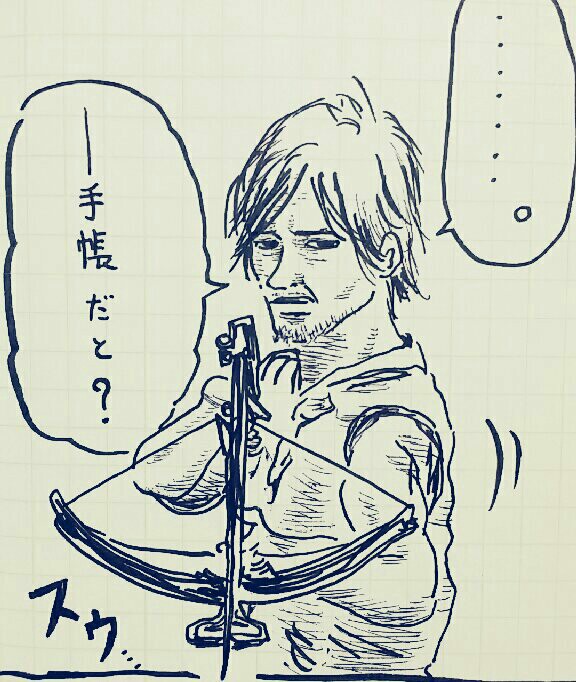 ………。
―手帳だと?
スウ…